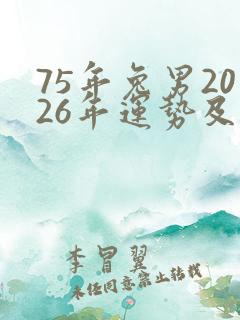 75年兔男20
26年運勢及
李冒翼
未经同意禁止转载